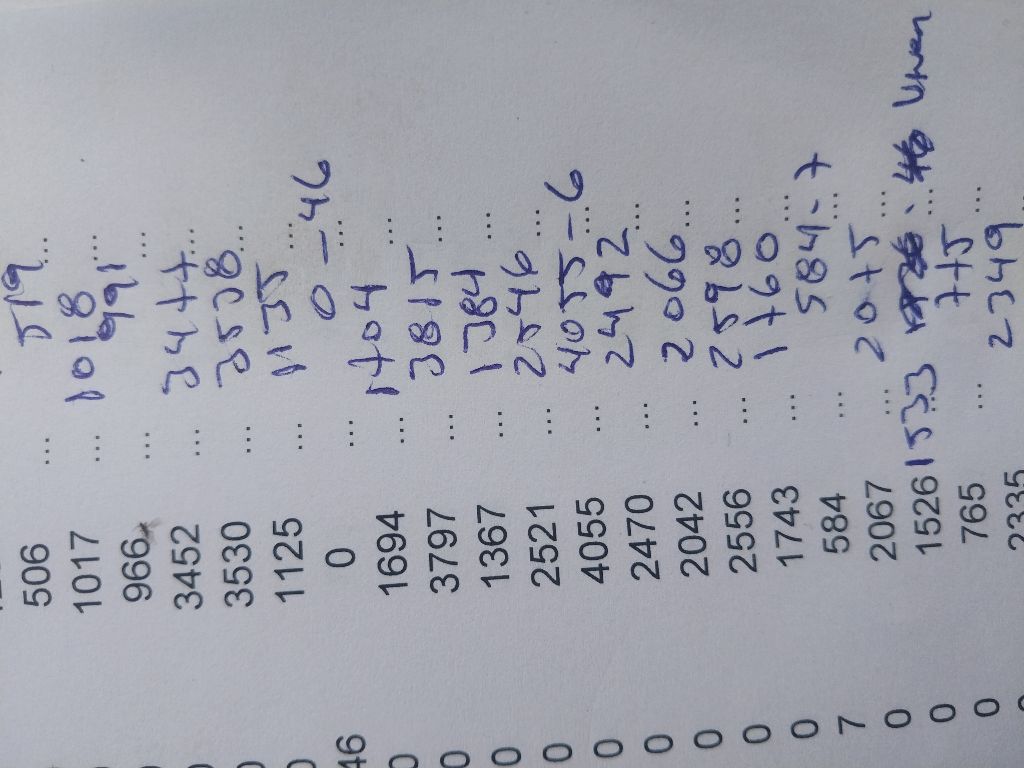 506 ... 519 ...
1017 ... 1018 ...
966 ... 991 ...
3452 ... 3477 ...
3530 ... 3538 ...
1125 ... 1135 ...
46 0 ... 0 - 46 ...
0 1694 ... 1704 ...
0 3797 ... 3815 ...
0 1367 ... 1384 ...
0 2521 ... 2546 ...
0 4055 ... 4055 - 6 ...
0 2470 ... 2492 ...
0 2042 ... 2066 ...
0 2556 ... 2598 ...
0 1743 ... 1760 ...
7 584 ... 584 - 7 ...
0 2067 ... 2075 ...
0 1526 ... 1533 ...
0 765 ... 775 ...
2335 ... 2349